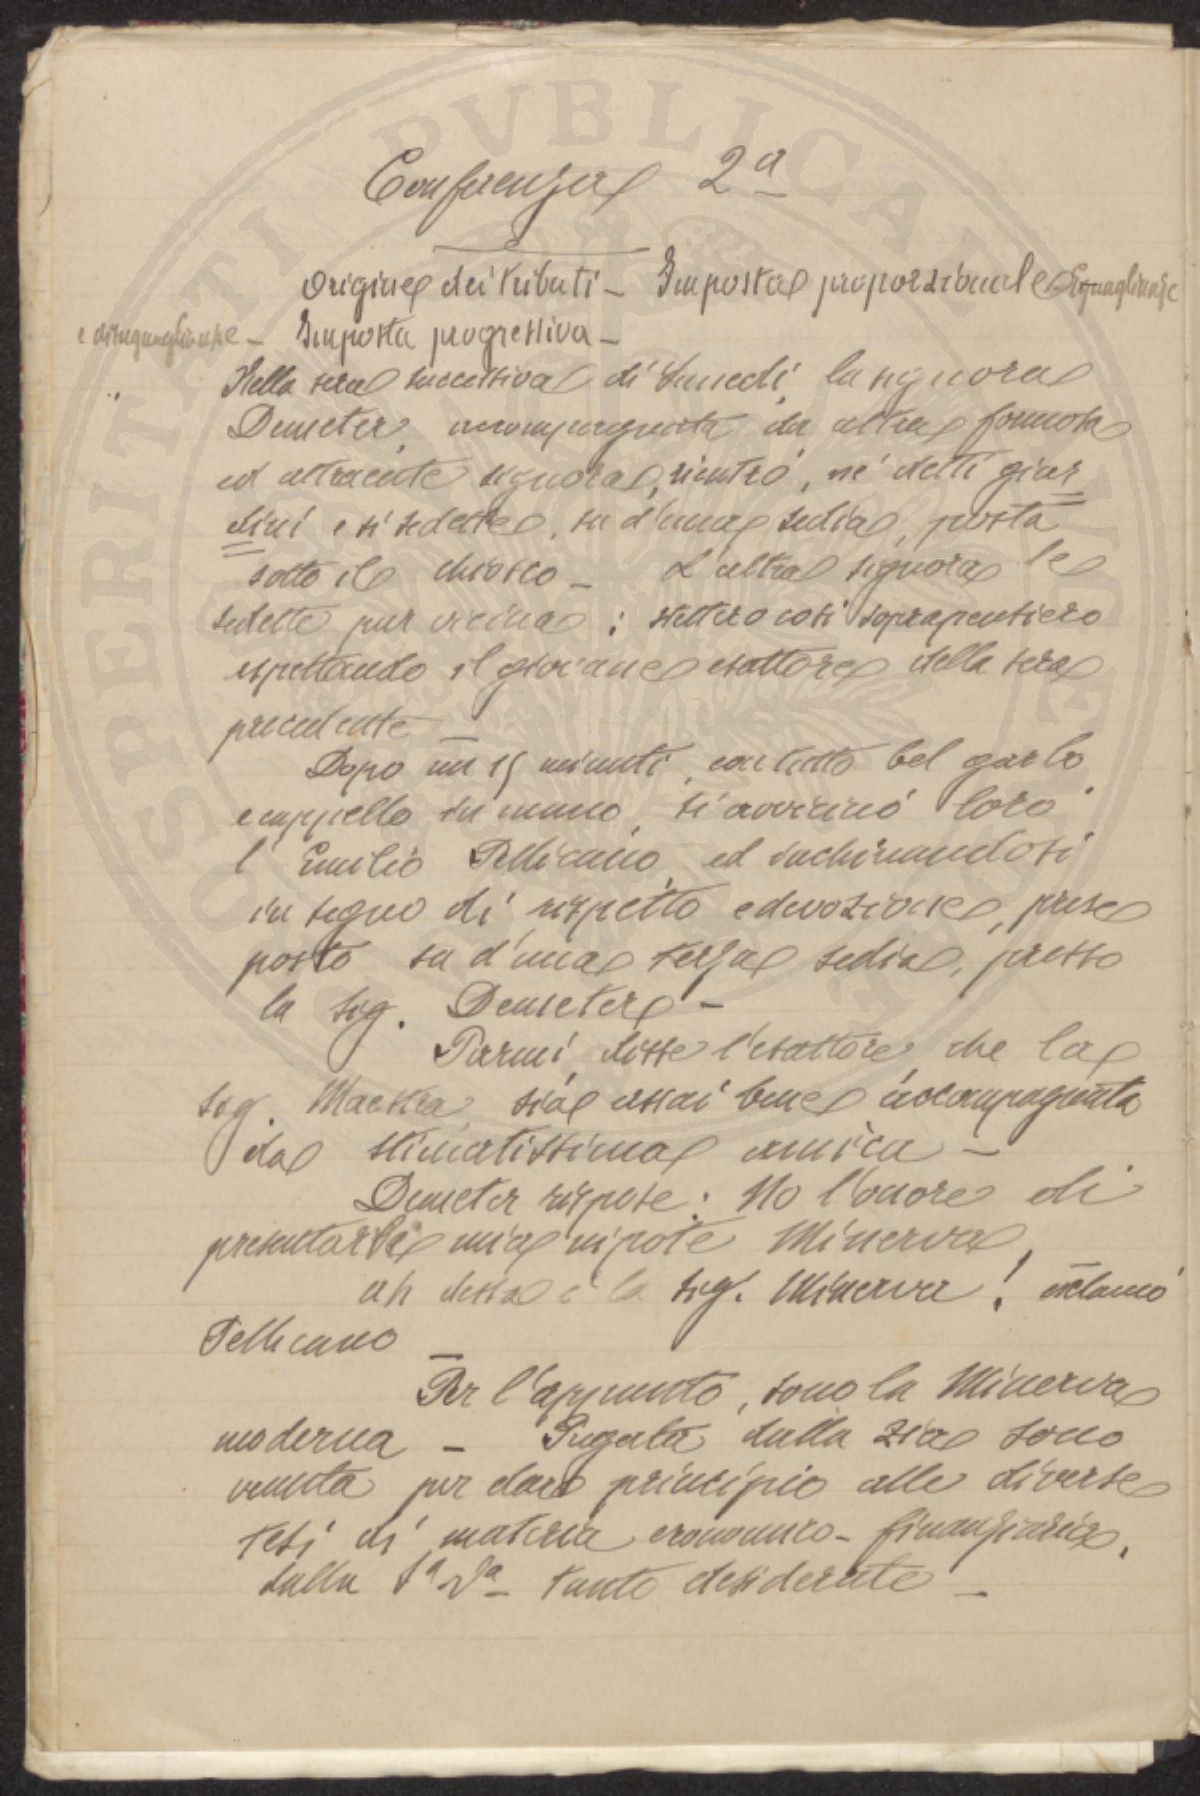 Conferenza 2ª
Origine dei tributi – Imposta proporzionale Eguaglianze
e disuguaglianze – Imposta progressiva –
Nella sera successiva di Lunedì, la signora
Demeter, accompagnata da altra formosa
ed attraente signora, rientró, ne' detti giar
dini e si sedette, su d'una sedia, posta
sotto il chiosco – L'altra signora le
sedette pur vicina; stettero così soprapensiero
aspettando il giovane esattore della sera
precedente –
Dopo un 15 minuti, con tutto bel garbo
e cappello in mano, si avvicinó loro
l'Emilio Pellicano, ed inchinandosi
in segno di rispetto e devozione, prese
posto su d'una terza sedia, presso
la sig. Demeter –
Parmi, disse l'esattore che la
sig. Maestra, sia assai bene accompagnata
da stimatissima amica –
Demeter rispose: Ho l'onore di
presentarle mia nipote Minerva,
ah dessa è la sig. Minerva! esclamó
Pellicano –
Per l'appunto, sono la Minerva
moderna – Pregata dalla zia sono
venuta per dare principio alle diverse
tesi di materia economico – finanziaria,
dalla S.ª V.ª – tanto desiderate –
SPERITATI PVBLICAE